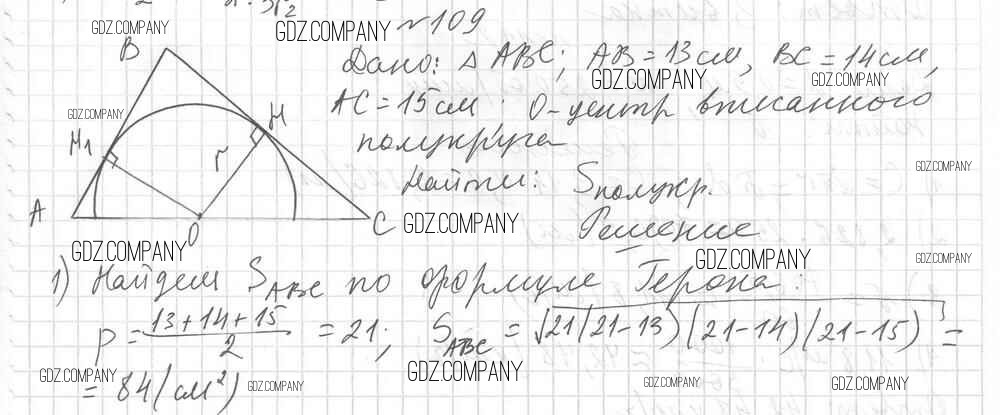 GDZ.COMPANY
GDZ.COMPANY
№109
B
Дано: △ABC; AB=13см, BC=14см,
GDZ.COMPANY
GDZ.COMPANY
AC=15см. O-центр вписанного
GDZ.COMPANY
H
полукруга
H₁
r
GDZ.COMPANY
Найти: Sполукр.
A
C
GDZ.COMPANY
O
Решение
GDZ.COMPANY
GDZ.COMPANY
GDZ.COMPANY
1) Найдем S_ABC по формуле Герона:
p = (13+14+15)/2 = 21; S_ABC = √21(21-13)(21-14)(21-15) =
GDZ.COMPANY
GDZ.COMPANY
= 84(см²)
GDZ.COMPANY
GDZ.COMPANY
GDZ.COMPANY